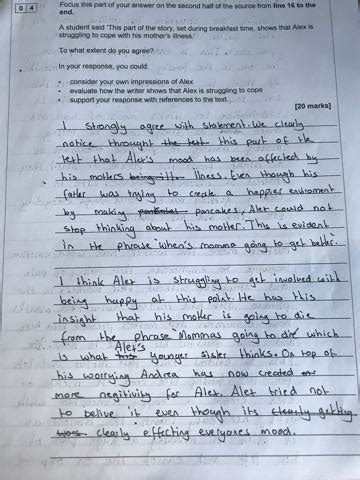 0 4
Focus this part of your answer on the second half of the source from line 16 to the
end.
A student said 'This part of the story, set during breakfast time, shows that Alex is
struggling to cope with his mother's illness.'
To what extent do you agree?
In your response, you could:
• consider your own impressions of Alex
• evaluate how the writer shows that Alex is struggling to cope
• support your response with references to the text.
[20 marks]
I strongly agree with statement. We clearly
notice throught the text this part of the
text that Alex's mood has been affected by
his mothers being ill. illness. Even though his
father was trying to create a happier enviroment
by making pancakes, Alex could not
stop thinking about his mother. This is evident
in the phrase 'when's momma going to get better.
I think Alex is struggling to get involved with
being happy at this point. He has this
insight that his mother is going to die
from the phrase 'Mommas going to die' which
is what his Alex's younger sister thinks. On top of
his worrying Andrea has now created
more negitivity for Alex. Alex tried not
to belive it even though its clearly getting
clearly effecting everyones mood.